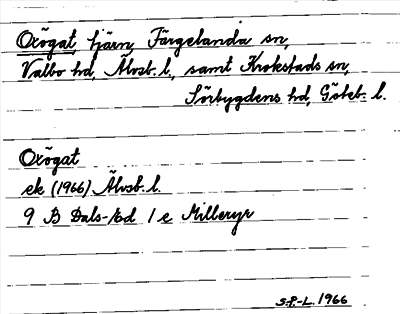 Oxögat, tjärn, Färgelanda sn,
Valbo hd, Älvsb. l., samt Krokstads sn,
Sörbygdens hd, Göteb. l.
Oxögat
ek (1966) Älvsb. l.
9 B Dals-Ed 1 e Milleryr
S.F.-L. 1966